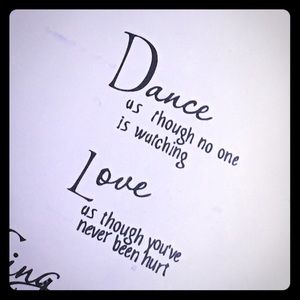 Dance
as though no one
is watching
Love
as though you've
never been hurt
Sing